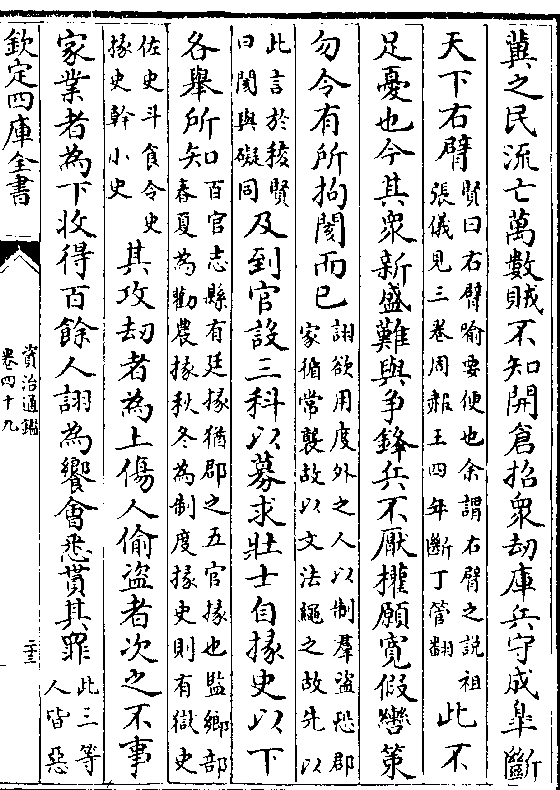 冀之民流亡萬數賊不知開倉招衆劫庫兵守成臯斷
天下右臂賢曰右臂喻要便也余謂右臂之說祖
張儀見三卷周赧王四年斷丁管翻此不
足憂也今其衆新盛難與爭鋒兵不厭權願寛假轡策
勿令有所拘閡而已詡欲用度外之人以制羣盜恐郡
家循常襲故以文法繩之故先以
此言於稜賢
曰閡與礙同及到官設三科以募求壯士自掾史以下
各舉所知百官志縣有廷掾猶郡之五官掾也監鄉部
春夏為勸農掾秋冬為制度掾史則有獄史
佐史斗食令史
掾史幹小史其攻劫者為上傷人偷盜者次之不事
家業者為下收得百餘人詡為饗會悉貰其罪此三等
人皆惡
欽定四庫全書
資治通鑑
卷四十九
二十三